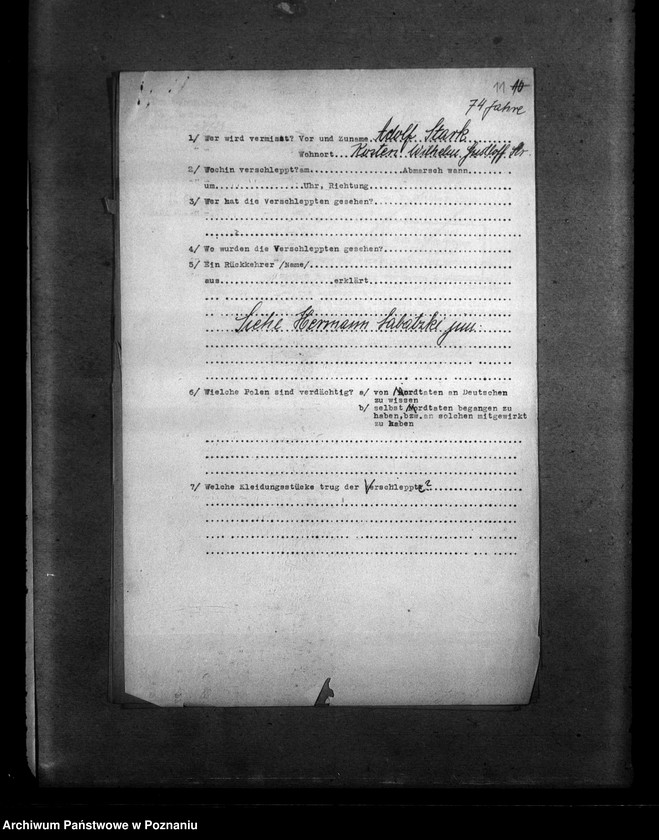 11 10
74 Jahre
1/ Wer wird vermisst? Vor und Zuname Adolf Stark
" " Wohnort Kosten Wilhelm Gustloff Str
2/ Wochin verschleppt?am.....................Abmarsch wann........
um....................Uhr, Richtung..............................
3/ Wer hat die Verschleppten gesehen?..............................
4/ Wo wurden die Verschleppten gesehen?............................
5/ Ein Rückkehrer /Name/...........................................
aus..........................erklärt..............................
Siehe Hermann Sabatzki jun.
6/ Wielche Polen sind verdächtig? a/ von Mordtaten an Deutschen
zu wissen
b/ selbst Mordtaten begangen zu
haben,bzw.an solchen mitgewirkt
zu haben
7/ Welche Kleidungsstücke trug der Verschleppte?
Archiwum Państwowe w Poznaniu